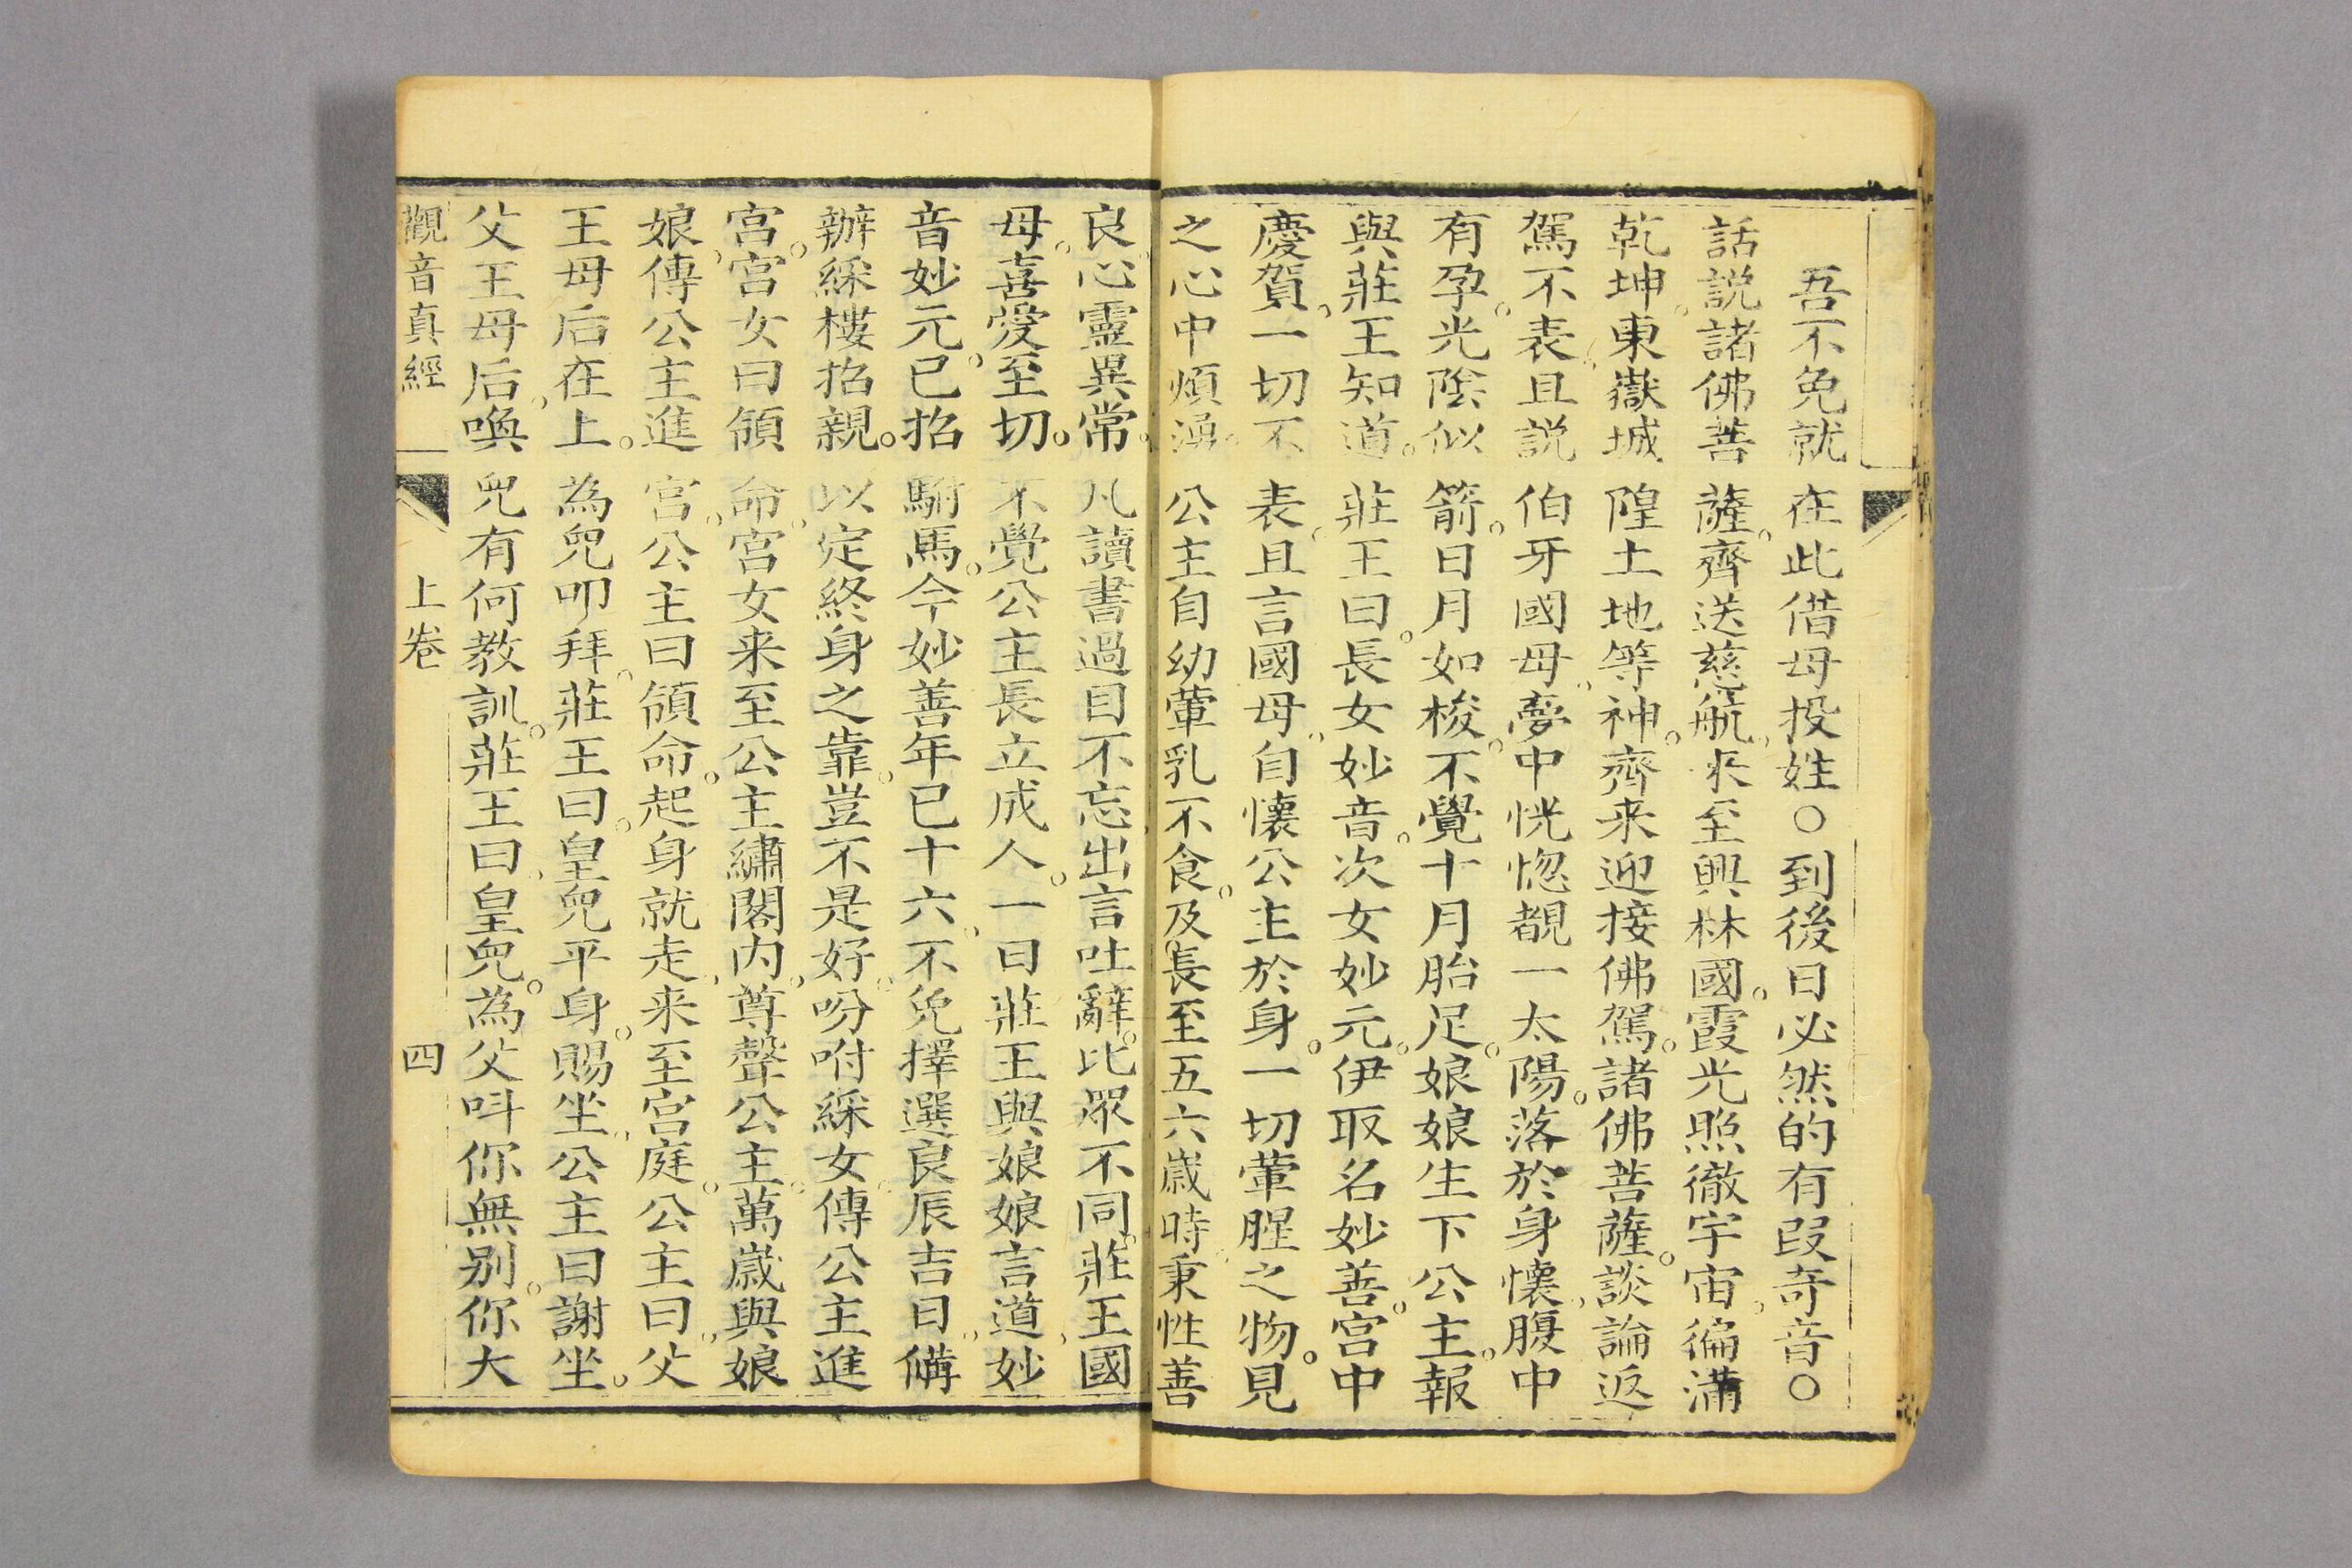 吾不免就在此借母投姓○到後日必然的有叚奇音○
話説諸佛菩薩。齊送慈航、来至興林國。霞光照徹宇宙、徧滿
乾坤。東嶽城隍土地等神。齊来迎接佛駕。諸佛菩薩。談論返
駕不表、且説伯牙國母、夢中恍惚覩一太陽。落於身懷、腹中
有孕。光陰似箭。日月如梭。不覺十月胎足。娘娘生下公主。報
與莊王知道。莊王曰。長女妙音。次女妙元。伊取名妙善。宫中
慶賀。一切不表、且言國母、自懷公主於身。一切葷腥之物。見
之心中煩湧。公主自幼葷乳不食。及長至五六歳時、秉性善
良、心靈異常。凡讀書過目不忘、出言吐辭。比眾不同。莊王國
母。喜愛至切。不覺公主長立成人。一日莊王與娘娘言道、妙
音妙元。已招駙馬。今妙善年已十六、不免擇選良辰吉日、備
辦綵樓招親。以定終身之靠。豈不是好。吩咐綵女、傳公主進
宫。宫女曰領命、宫女来至公主繡閣内、尊聲公主、萬歳與娘
娘、傳公主進宫、公主曰領命。起身就走、来至宫庭。公主曰、父
王母后在上。為兒叩拜。莊王曰。皇兒平身。賜坐、公主曰謝坐。
父王母后、喚兒有何教訓。莊王曰、皇兒。為父呌你無别。你大
觀音真經 上卷 四